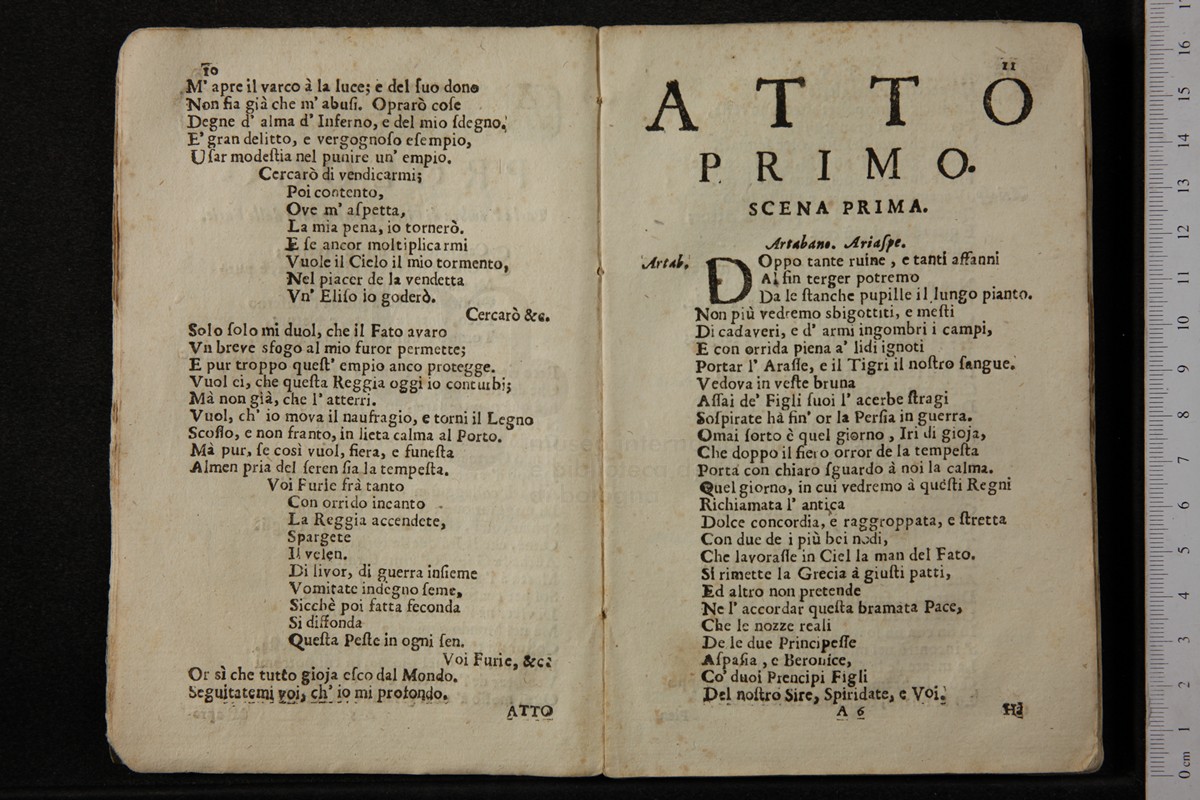 10
M' apre il varco à la luce; e del ſuo dono
Non fia già che m' abuſi. Oprarò coſe
Degne d' alma d' Inferno, e del mio ſdegno.
E' gran delitto, e vergognoſo eſempio,
Uſar modeſtia nel punire un' empio.
Cercarò di vendicarmi;
Poi contento,
Ove m' aſpetta,
La mia pena, io tornerò.
E ſe ancor moltiplicarmi
Vuole il Cielo il mio tormento,
Nel piacer de la vendetta
Vn' Eliſo io goderò.
Cercarò &c.
Solo ſolo mi duol, che il Fato avaro
Vn breve sfogo al mio furor permette;
E pur troppo queſt' empio anco protegge.
Vuol ci, che queſta Reggia oggi io conturbi;
Mà non già, che l' atterri.
Vuol, ch' io mova il naufragio, e torni il Legno
Scoſſo, e non franto, in lieta calma al Porto.
Mà pur, ſe così vuol, fiera, e funeſta
Almen pria del ſeren ſia la tempeſta.
Voi Furie frà tanto
Con orrido incanto
La Reggia accendete,
Spargete
Il velen.
Di livor, di guerra inſieme
Vomitate indegno ſeme,
Sicchè poi fatta feconda
Si diffonda
Queſta Peſte in ogni ſen.
Voi Furie, &c.
Or sì che tutto gioja eſco dal Mondo.
Seguitatemi voi, ch' io mi profondo.
ATTO
11
ATTO
PRIMO.
SCENA PRIMA.
Artabano. Ariaſpe.
Artab. DOppo tante ruine, e tanti affanni
Al fin terger potremo
Da le ſtanche pupille il lungo pianto.
Non più vedremo sbigottiti, e meſti
Di cadaveri, e d' armi ingombri i campi,
E con orrida piena a' lidi ignoti
Portar l' Araſſe, e il Tigri il noſtro ſangue.
Vedova in veſte bruna
Aſſai de' Figli ſuoi l' acerbe ſtragi
Soſpirate hà fin' or la Perſia in guerra.
Omai ſorto è quel giorno, Iri di gioja,
Che doppo il fiero orror de la tempeſta
Porta con chiaro ſguardo à noi la calma.
Quel giorno, in cui vedremo à queſti Regni
Richiamata l' antica
Dolce concordia, e raggroppata, e ſtretta
Con due de i più bei nodi,
Che lavoraſſe in Ciel la man del Fato.
Si rimette la Grecia à giuſti patti,
Ed altro non pretende
Ne l' accordar queſta bramata Pace,
Che le nozze reali
De le due Principeſſe
Aſpaſia, e Beronice,
Co' duoi Prencipi Figli
Del noſtro Sire, Spiridate, e Voi.
A 6
Hà